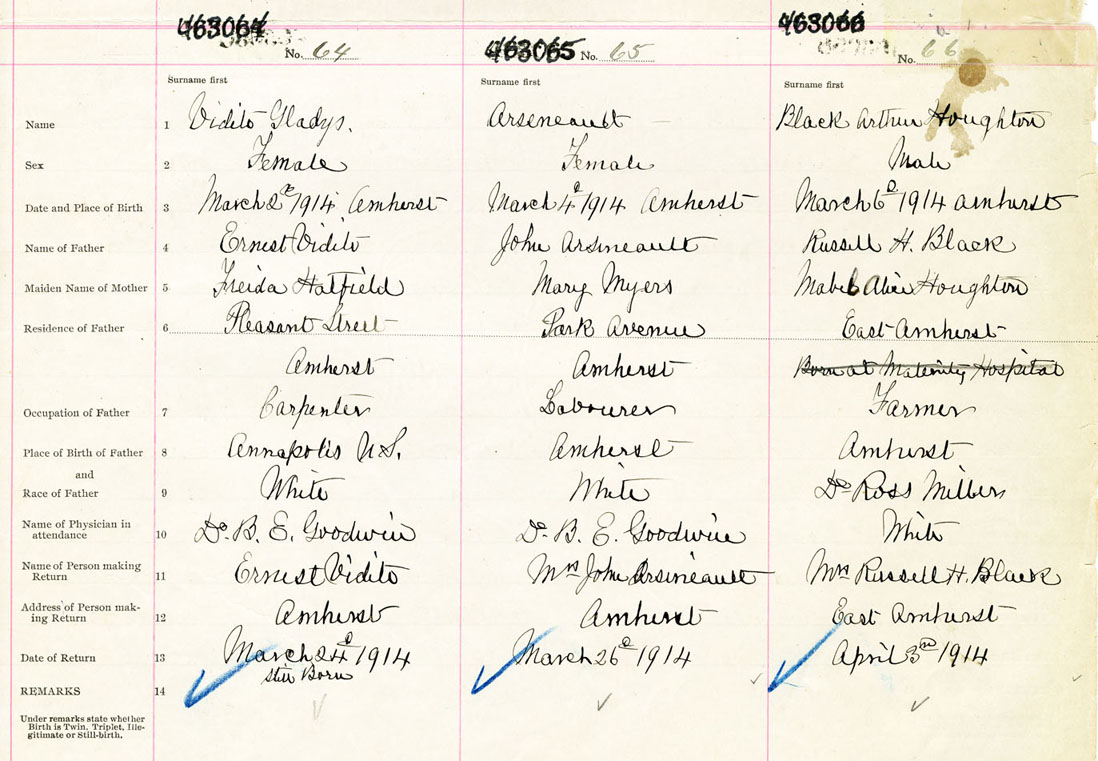 463064 463065 463066
No. 64 No. 65 No. 66
Surname first Surname first Surname first
Name 1 Vidito Gladys. Arseneault Black Arthur Houghton
Sex 2 Female Female Male
Date and Place of Birth 3 March 2d 1914 Amherst March 4th 1914 Amherst March 6th 1914 Amherst
Name of Father 4 Ernest Vidito John Arsineault Russell H. Black
Maiden Name of Mother 5 Freida Hatfield Mary Myers Mabel Alice Houghton
Residence of Father 6 Pleasant Street Park Avenue East Amherst
Amherst Amherst Born at Maternity Hospital
Occupation of Father 7 Carpenter Labourer Farmer
Place of Birth of Father 8 Annapolis N.S. Amherst Amherst
and
Race of Father 9 White White Dr Ross Millar
Name of Physician in
attendance 10 Dr. B. E. Goodwin Dr. B. E. Goodwin White
Name of Person making
Return 11 Ernest Vidito Mrs John Arsineault Mrs Russell H. Black
Address of Person mak-
ing Return 12 Amherst Amherst East Amherst
Date of Return 13 March 24th 1914 March 26th 1914 April 3rd 1914
Still Born
REMARKS 14
Under remarks state whether
Birth is Twin, Triplet, Ille-
gitimate or Still-birth.